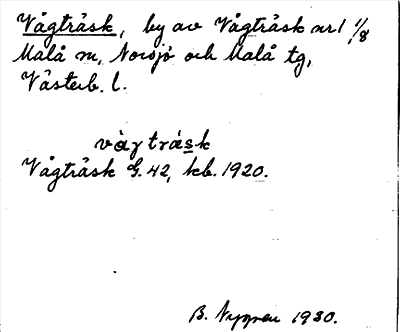 Vågträsk, by av Vågträsk nr 1 1/8
Malå sn, Norsjö och Malå tg,
Västerb. l.
vàgträsk
Vågträsk G. 42, kb. 1920.
B. Nygren 1930.